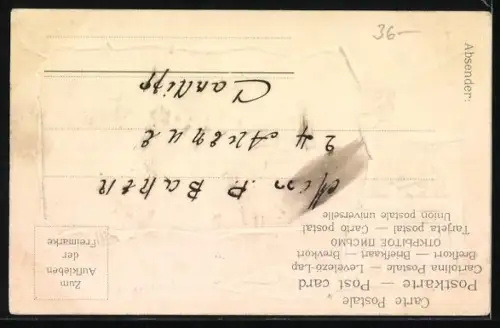 Carte Postale
Postkarte — Post card
Cartolina Postale — Levelező-Lap
Brefkort — Briefkaart — Brevkort
ОТКРЫТОЕ ПИСЬМО
Tarjeta postal — Carto postal
Union postale universelle
Zum
Aufkleben
der
Freimarke
P. Baker
24 Avenue
Cardiff
Absender:
36—